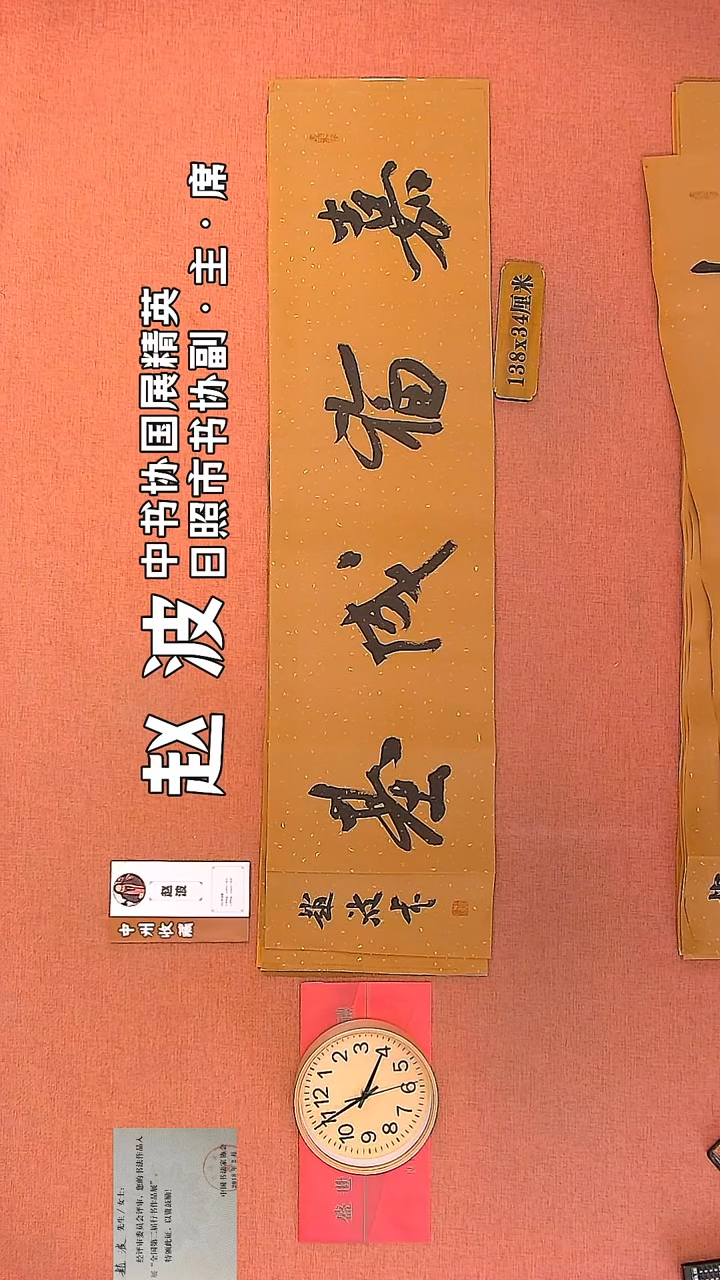 赵波
中书协国展精英
日照市书协副·主·席
嘉福成
趙波书
138x34厘米
赵波
中州收藏
12
1
2
3
4
5
6
7
8
9
10
11
盛世
赵波 先生/女士:
经评审委员会评审，您的书法作品入
展“全国第二届行书作品展”。
特颁此证，以资鼓励!
中国书法家协会